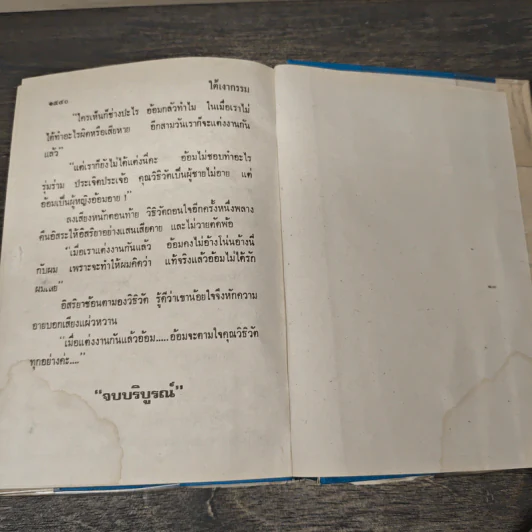 ๑๕๔๐ ใต้เงากรรม
"ใครเห็นก็ช่างปะไร อ้อมกลัวทำไม ในเมื่อเราไม่
ได้ทำอะไรผิดหรือเสียหาย อีกสามวันเราก็จะแต่งงานกัน
แล้ว"
"แต่เราก็ยังไม่ได้แต่งนี่คะ อ้อมไม่ชอบทำอะไร
รุ่มร่าม ประเจิดประเจ้อ คุณวิธิวัตเป็นผู้ชายไม่อาย แต่
อ้อมเป็นผู้หญิงอ้อมอาย !"
ลงเสียงหนักตอนท้าย วิธิวัตถอนใจอีกครั้งหนึ่งพลาง
คืนอิสระให้อิสริยาอย่างแสนเสียดาย และไม่วายตัดพ้อ
"เมื่อเราแต่งงานกันแล้ว อ้อมคงไม่อ้างโน่นอ้างนี่
กับผม เพราะจะทำให้ผมคิดว่า แท้จริงแล้วอ้อมไม่ได้รัก
ผมเลย"
อิสริยาช้อนตามองวิธิวัต รู้ดีว่าเขาน้อยใจจึงหักความ
อายบอกเสียงแผ่วหวาน
"เมื่อแต่งงานกันแล้วอ้อม.....อ้อมจะตามใจคุณวิธิวัต
ทุกอย่างค่ะ...."
"จบบริบูรณ์"